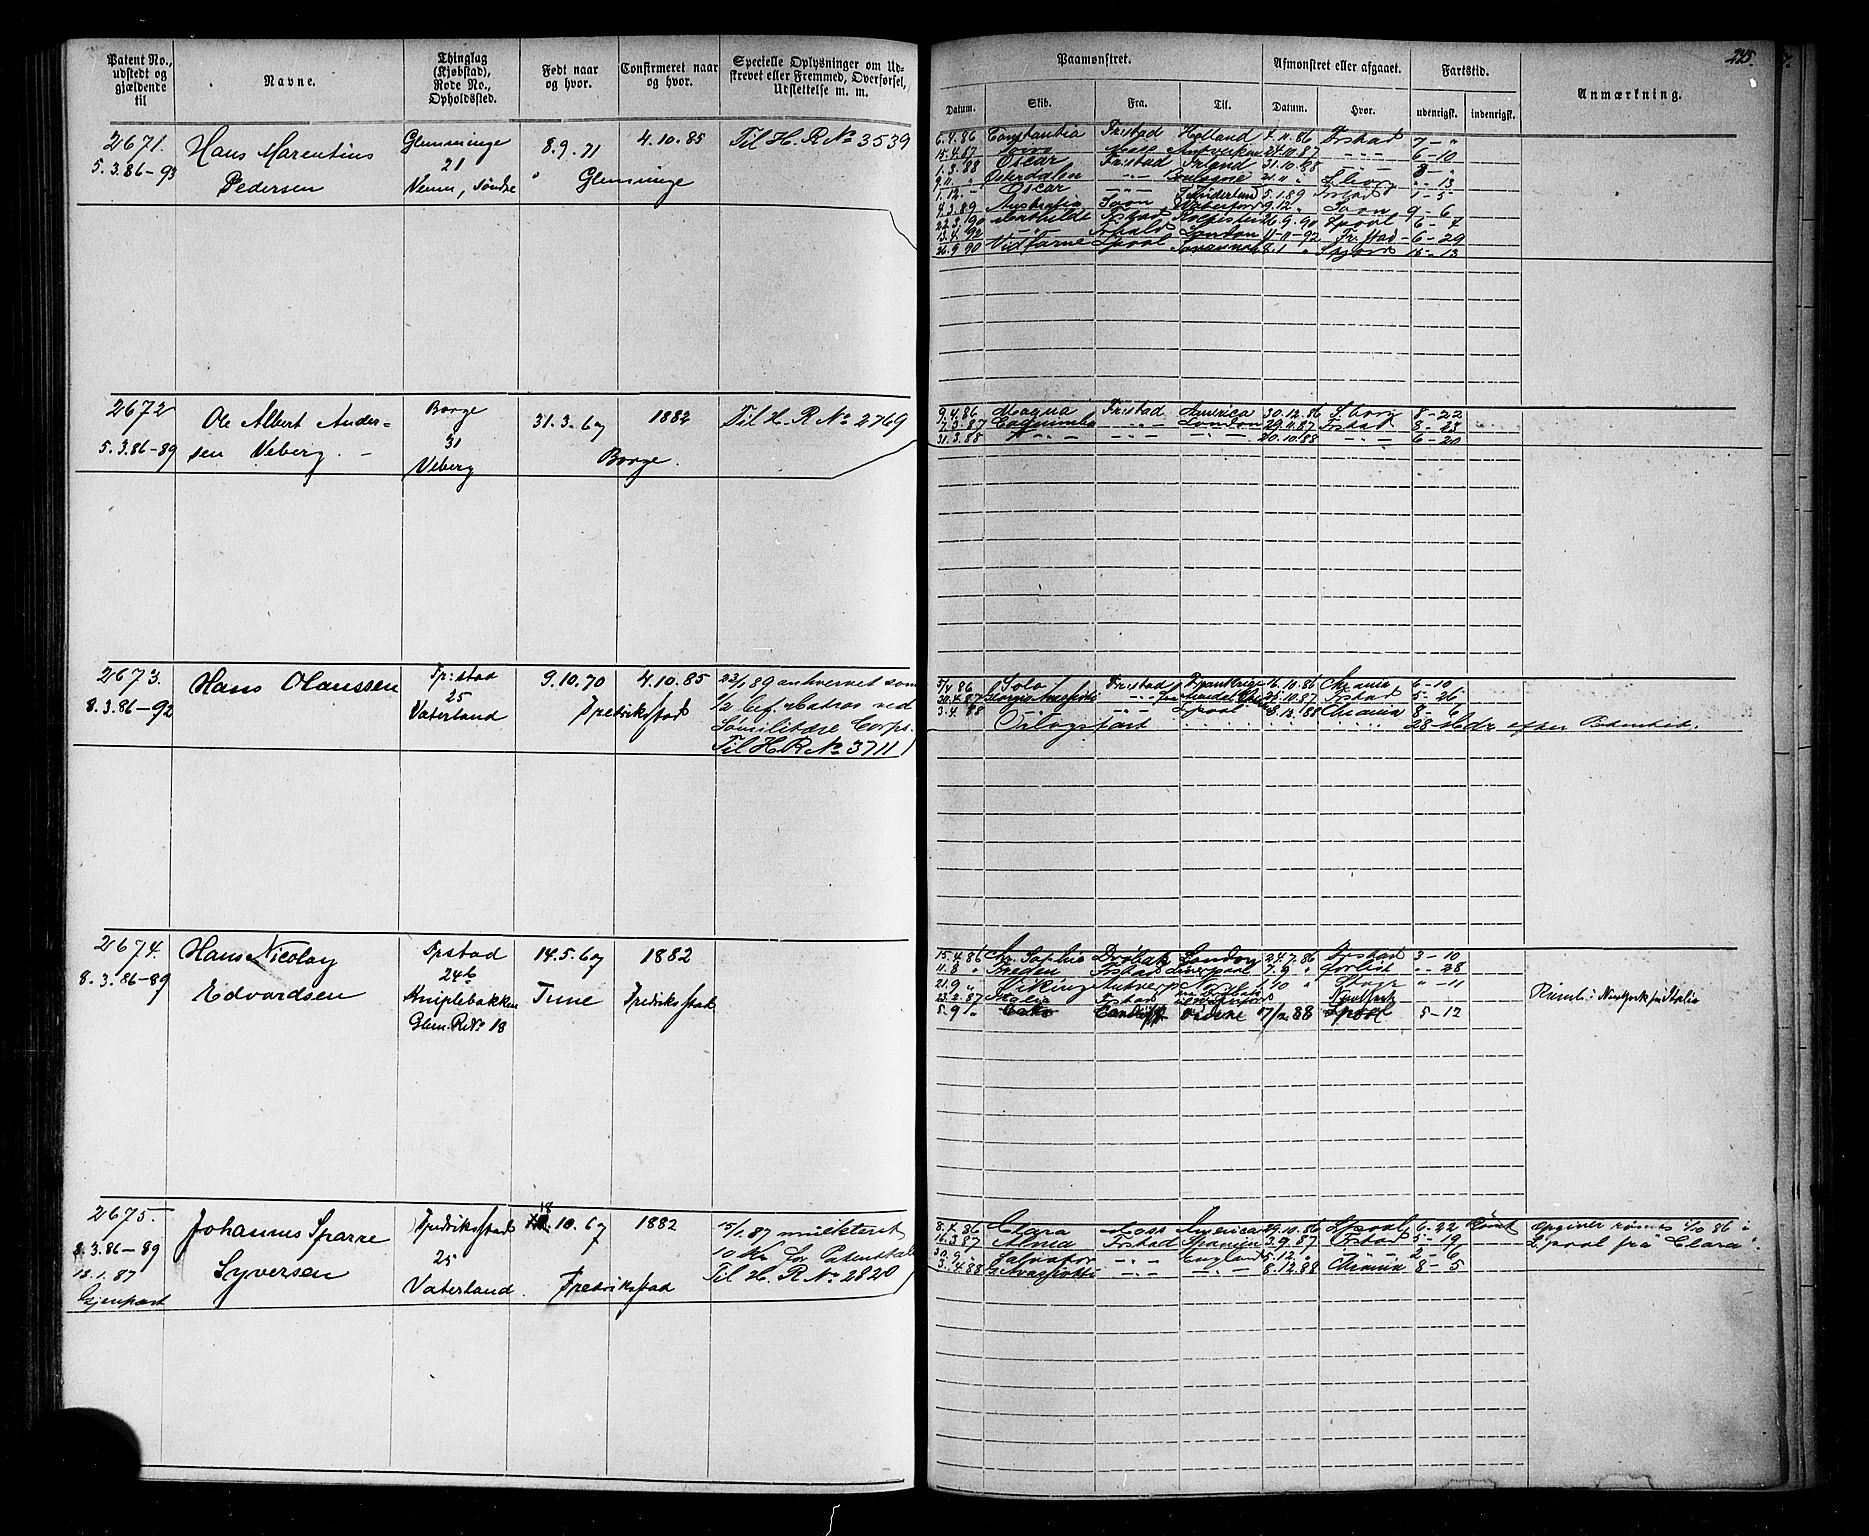 Patent No., udstedt og gjældende til
Navne.
Thinglag (Kjøbstad), Rode No., Opholdssted.
Født naar og hvor.
Confirmeret naar og hvor.
Specielle Oplysninger om Udskrevet eller Fremmed, Overførsel, Udslettelse m. m.
Paamønstret.
Afmønstret eller afgaaet.
Fartstid.
Anmærkning.
245.
Datum.
Skib.
Fra.
Til.
Datum.
Hvor.
udenrigsk.
indenrigsk.
2671.
5.3.86-93
Hans Marentius
Pedersen
Glemminge
21
Venm, søndre
8.9.71
Glemminge
4.10.85
Til H. R No 3539
6.4.86 Constantia Fr:stad Holland 86 Frstad 7 - "
15.4.87 Moss 24.10.87 - " - 6 - 10
1.3.88 Oscar Fr:stad Irland 31.10.88 8 - "
Østerdalen - " - " - 13
1.12. " Oscar - " - 5.1.89 Frstad 1 - 5
4.3.89 Australia 9.12. " 9 - 6
22.3.90 Mathilde Frstad 26.9.90 Lpool 6 - 7
13.4.92 London 11.11.92 Fr.stad 6 - 29
26.9.90 Vidfarne Lpool Savannah 13
2672
5.3.86-89
Ole Albert Ander-
sen Veberg. -
Borge
31
Veberg
31.3.67
Borge.
1882
Til H. R No 2769
9.4.86 Magna Fr:stad America 30.12.86 S.borg 8 - 22
7.3.87 Coquimbo - " - London 29.11.87 Frstad 8 - 23
31.3.88 - " - - " - - " - 20.10.88 - " - 6 - 20
2673.
8.3.86-92
Hans Olaussen
Fr:stad
25
Vaterland
9.10.70
Fredrikstad
4.10.85
22/1 89 anhvervet som
1/2 bef. Matros ved
Sömilitære Corps.
Til H. R No 3711
5/4 86 Solo Fr:stad Frankrige 16.10.86 Chrania 6 - 10
30.4.87 25.10.87 Frstad 5 - 26
3.4.88 - " - Lpool 8.12.88 Chrania 8 - 6
Orlogsfart 28 Mdr efter
2674.
8.3.86-89
Hans Nicolay
Edvardsen
Frstad
24b
Kniplebakken
Glem. RNo 18
14.5.67
Tune
1882
Fredrikstad
15.4.86 Chr. Sophie Drøbak London 24.7.86 Frstad 3 - 10
11.8 " Sveden Frstad Liverpool 7.9 " " - 28
21.9 " Viking Antverp N. York /10 " " - 11
23.2.87 Italia Frstad New York
5.9 " Cardiff 7/2 88 Lpool 5 - 12
Römt i New York fra Italia
2675.
8.3.86-89
18.1.87
Gjenpart
Johannes Sparre
Syversen
Fredrikstad
25
Vaterland.
18
10.67
Fredrikstad
1882
15/1.87 mulkteret
10 Kr for Patenttab
Til H. R. No 2820
8.4.86 Clara Moss America 29.10.86 Lpool 6 - 22 Römt
16.3.87 Alma Frstad Spanien 3.9.87 Frstad 5 - 19
30.9 " Salvator - " - England 5.12 " - " - 2 - 6
3.4.88 - " - - " - 8.12.88 Chrania 8 - 5
Opgiver römt 4/10 86 i
Lpool frå "Clara".